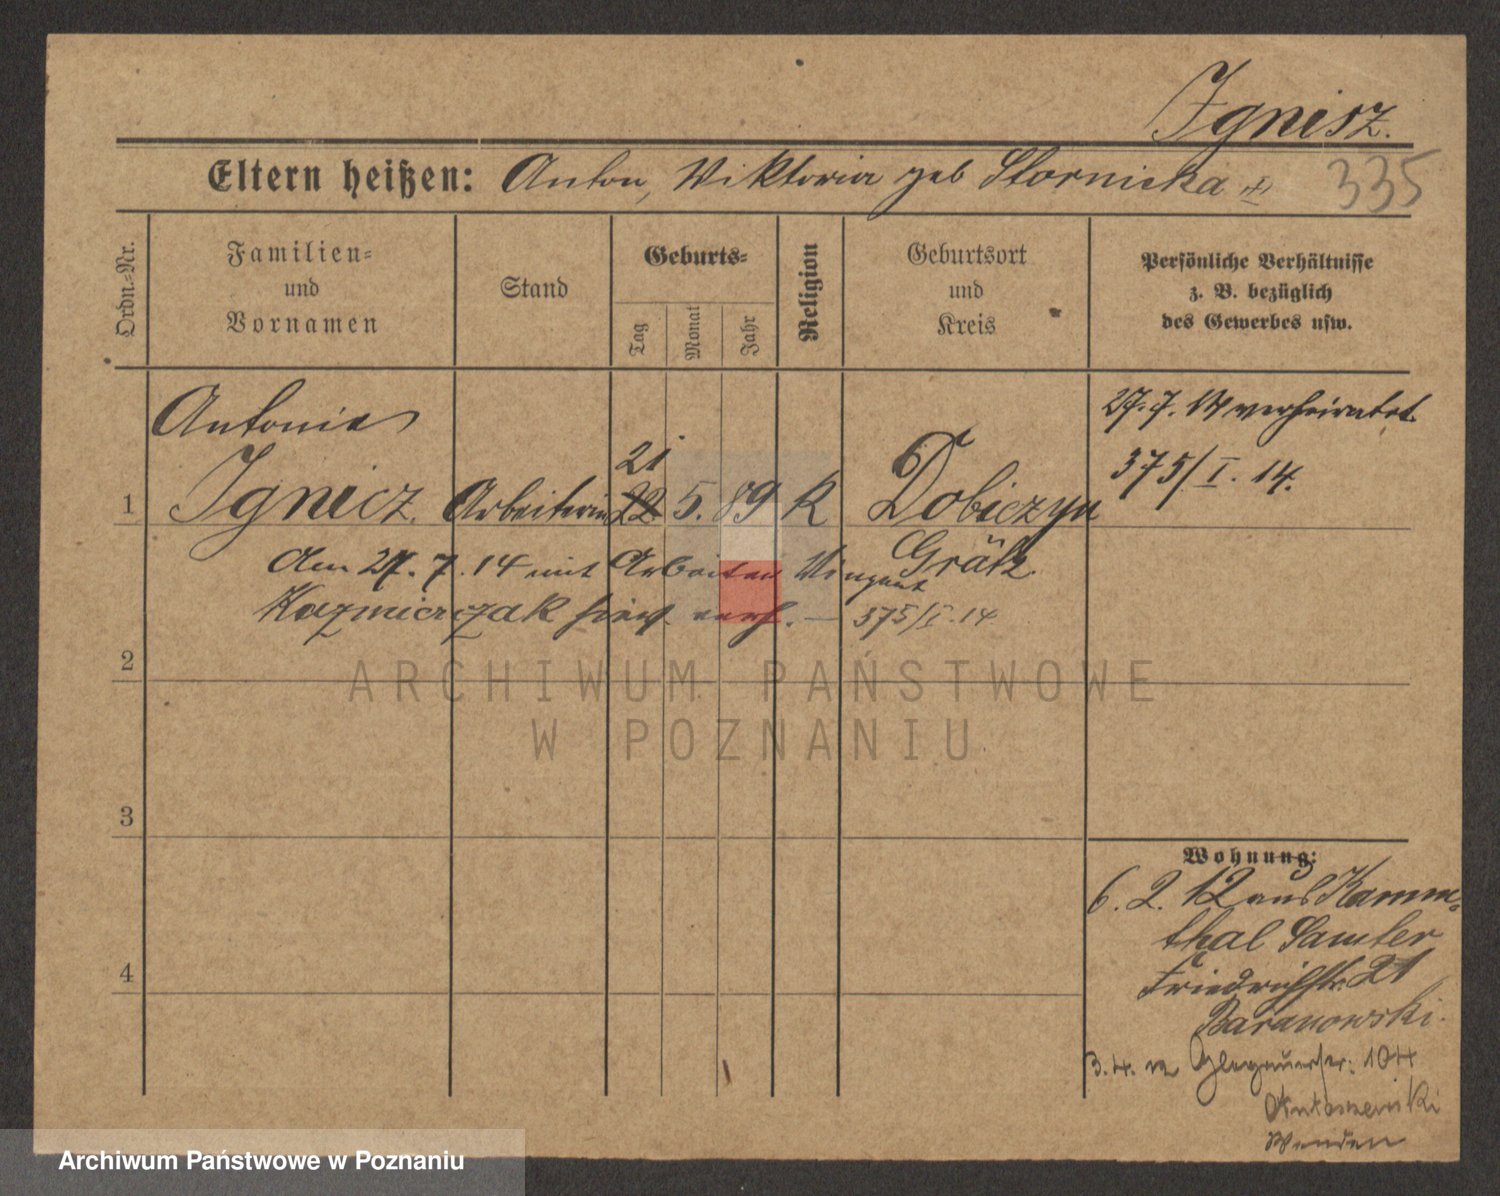 Ignisz.
Eltern heißen: Anton, Viktoria geb Stornicka
335
Ordn.-Nr.
Familien-
und
Vornamen
Stand
Geburts-
Tag
Monat
Jahr
Religion
Geburtsort
und
Kreis
Persönliche Verhältnisse
z. B. bezüglich
des Gewerbes usw.
Antonie
27. 7. 14 verheiratet
375/I. 14.
21
1 Ignicz. Arbeiterin 22. 5. 89 K Dobiczyn
Grätz.
Am 27. 7. 14 mit Arbeiter Vinzent
Kazmierczak hier verh. — 375/I. 14
2
3
4
Wohnung:
6. 2. 12 aus Kamm-
thal Samter
Friedrichstr. 21
Baranowski.
3. 4. 12 Glogauerstr. 104
ARCHIWUM PAŃSTWOWE
W POZNANIU
Archiwum Państwowe w Poznaniu